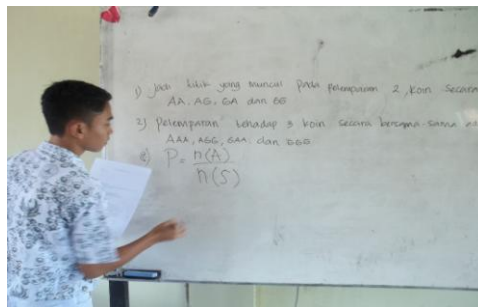 1) Jadi titik yang muncul pada pelemparan 2 koin secara
AA, AG, GA dan GG
2) Pelemparan terhadap 3 koin secara bersama-sama
AAA, AGG, GAA, dan GGG
P = n(A)
n(S)